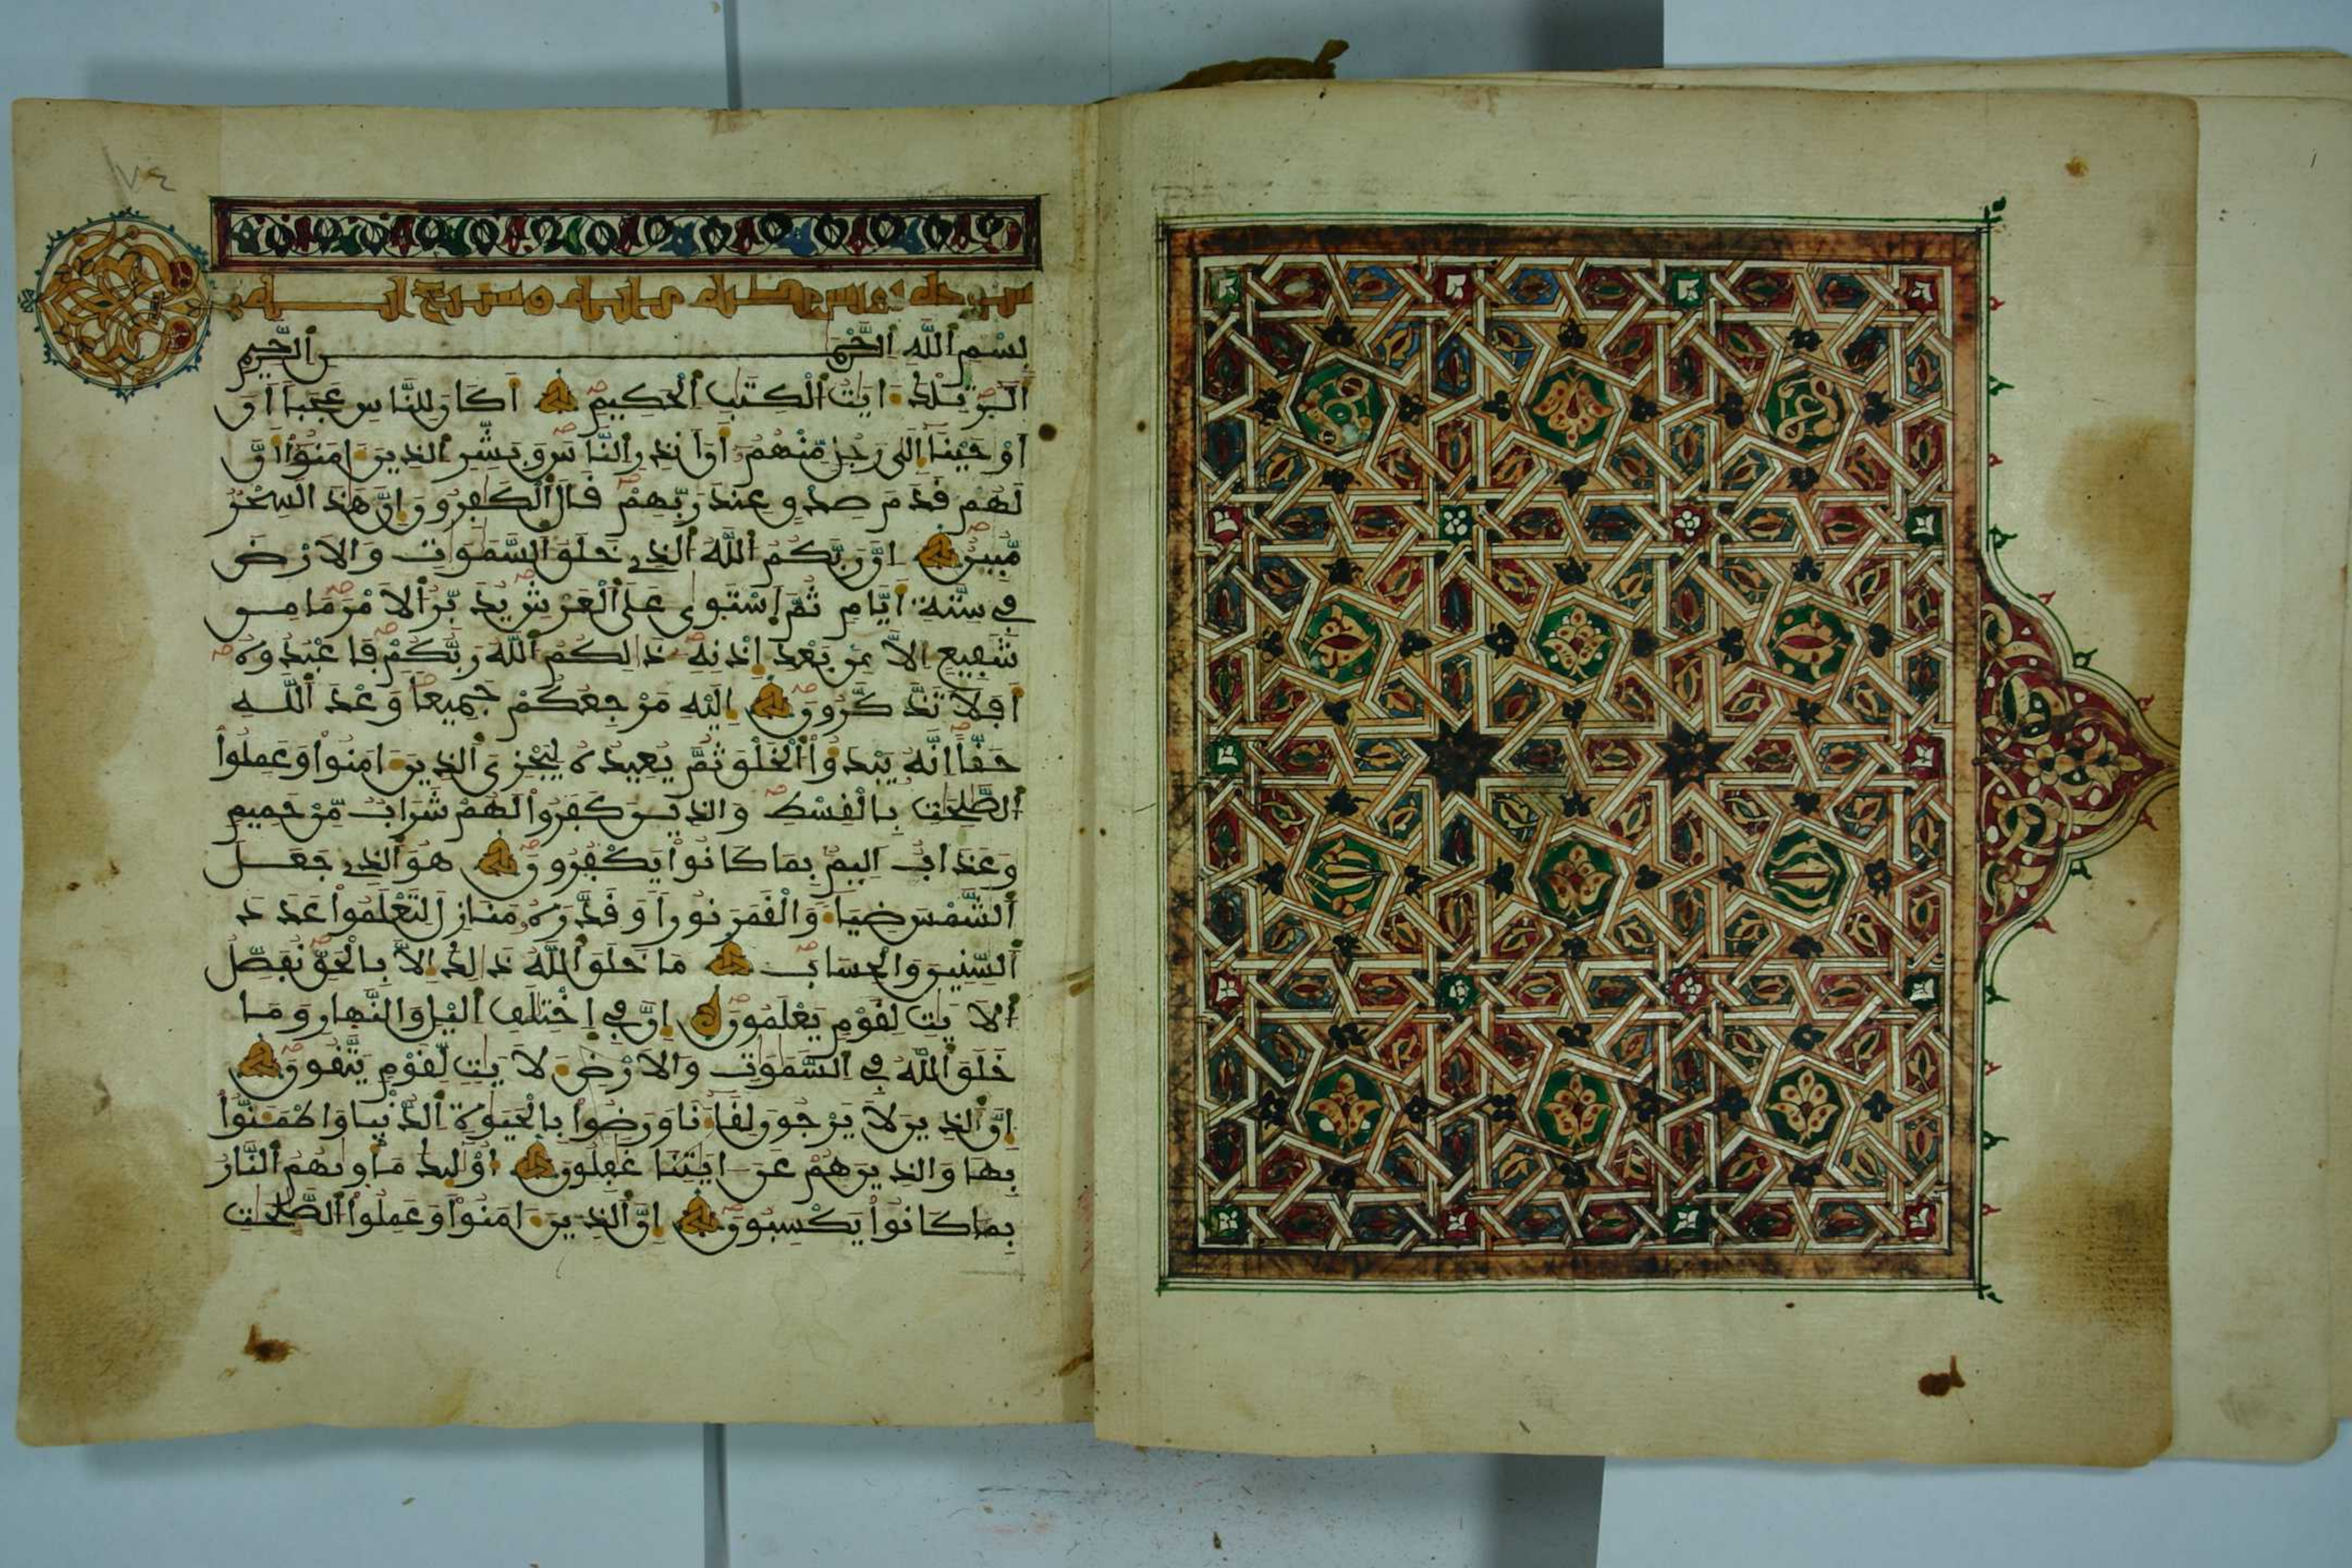 ٧٤
سورة يونس
بسم الله الرحمن الرحيم
الر تلك ايت الكتب الحكيم اكان للناس عجبا ان
اوحينا الى رجل منهم ان انذر الناس وبشر الذين امنوا ان
لهم قدم صدق عند ربهم قال الكفرون ان هذا لسحر
مبين ان ربكم الله الذي خلق السموت والارض
في ستة ايام ثم استوى على العرش يدبر الامر ما من
شفيع الا من بعد اذنه ذلكم الله ربكم فاعبدوه
افلا تذكرون اليه مرجعكم جميعا وعد الله
حقا انه يبدؤا الخلق ثم يعيده ليجزي الذين امنوا وعملوا
الصلحت بالقسط والذين كفروا لهم شراب من حميم
وعذاب اليم بما كانوا يكفرون هو الذي جعل
الشمس ضياء والقمر نورا وقدره منازل لتعلموا عدد
السنين والحساب ما خلق الله ذلك الا بالحق نفصل
الايت لقوم يعلمون ان في اختلف اليل والنهار وما
خلق الله في السموت والارض لايت لقوم يتقون
ان الذين لا يرجون لقاءنا ورضوا بالحيوة الدنيا واطمنوا
بها والذين هم عن ايتنا غفلون اوليك ماويهم النار
بما كانوا يكسبون ان الذين امنوا وعملوا الصلحت